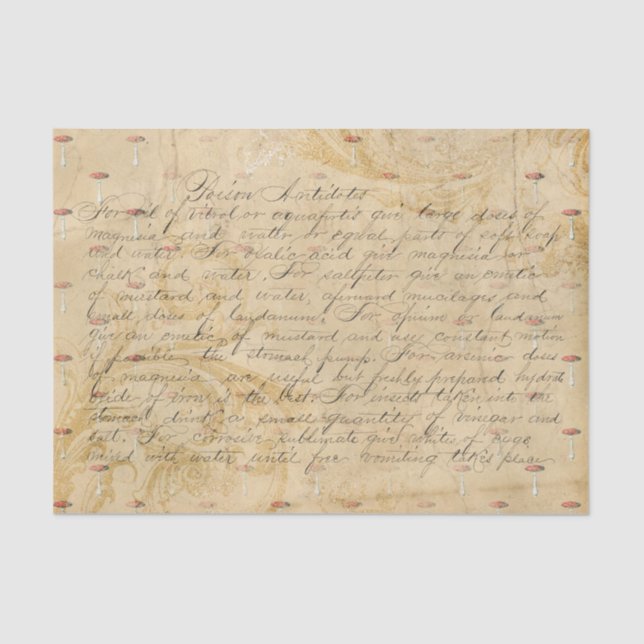 Poison Antidotes
For oil of vitrol or aquafortis give large doses of
magnesia and water or equal parts of soft soap
and water. For oxalic acid give magnesia or
chalk and water. For saltpeter give an emetic
of mustard and water, afterward mucilages and
small doses of laudanum. For opium or laudanum
give an emetic of mustard and use constant motion
if possible the stomach pump. For arsenic doses
of magnesia are useful but freshly prepared hydrate
oxide of iron is the best. For insects taken into the
stomach drink a small quantity of vinegar and
salt. For corrosive sublimate give whites of eggs
mixed with water until free vomiting takes place